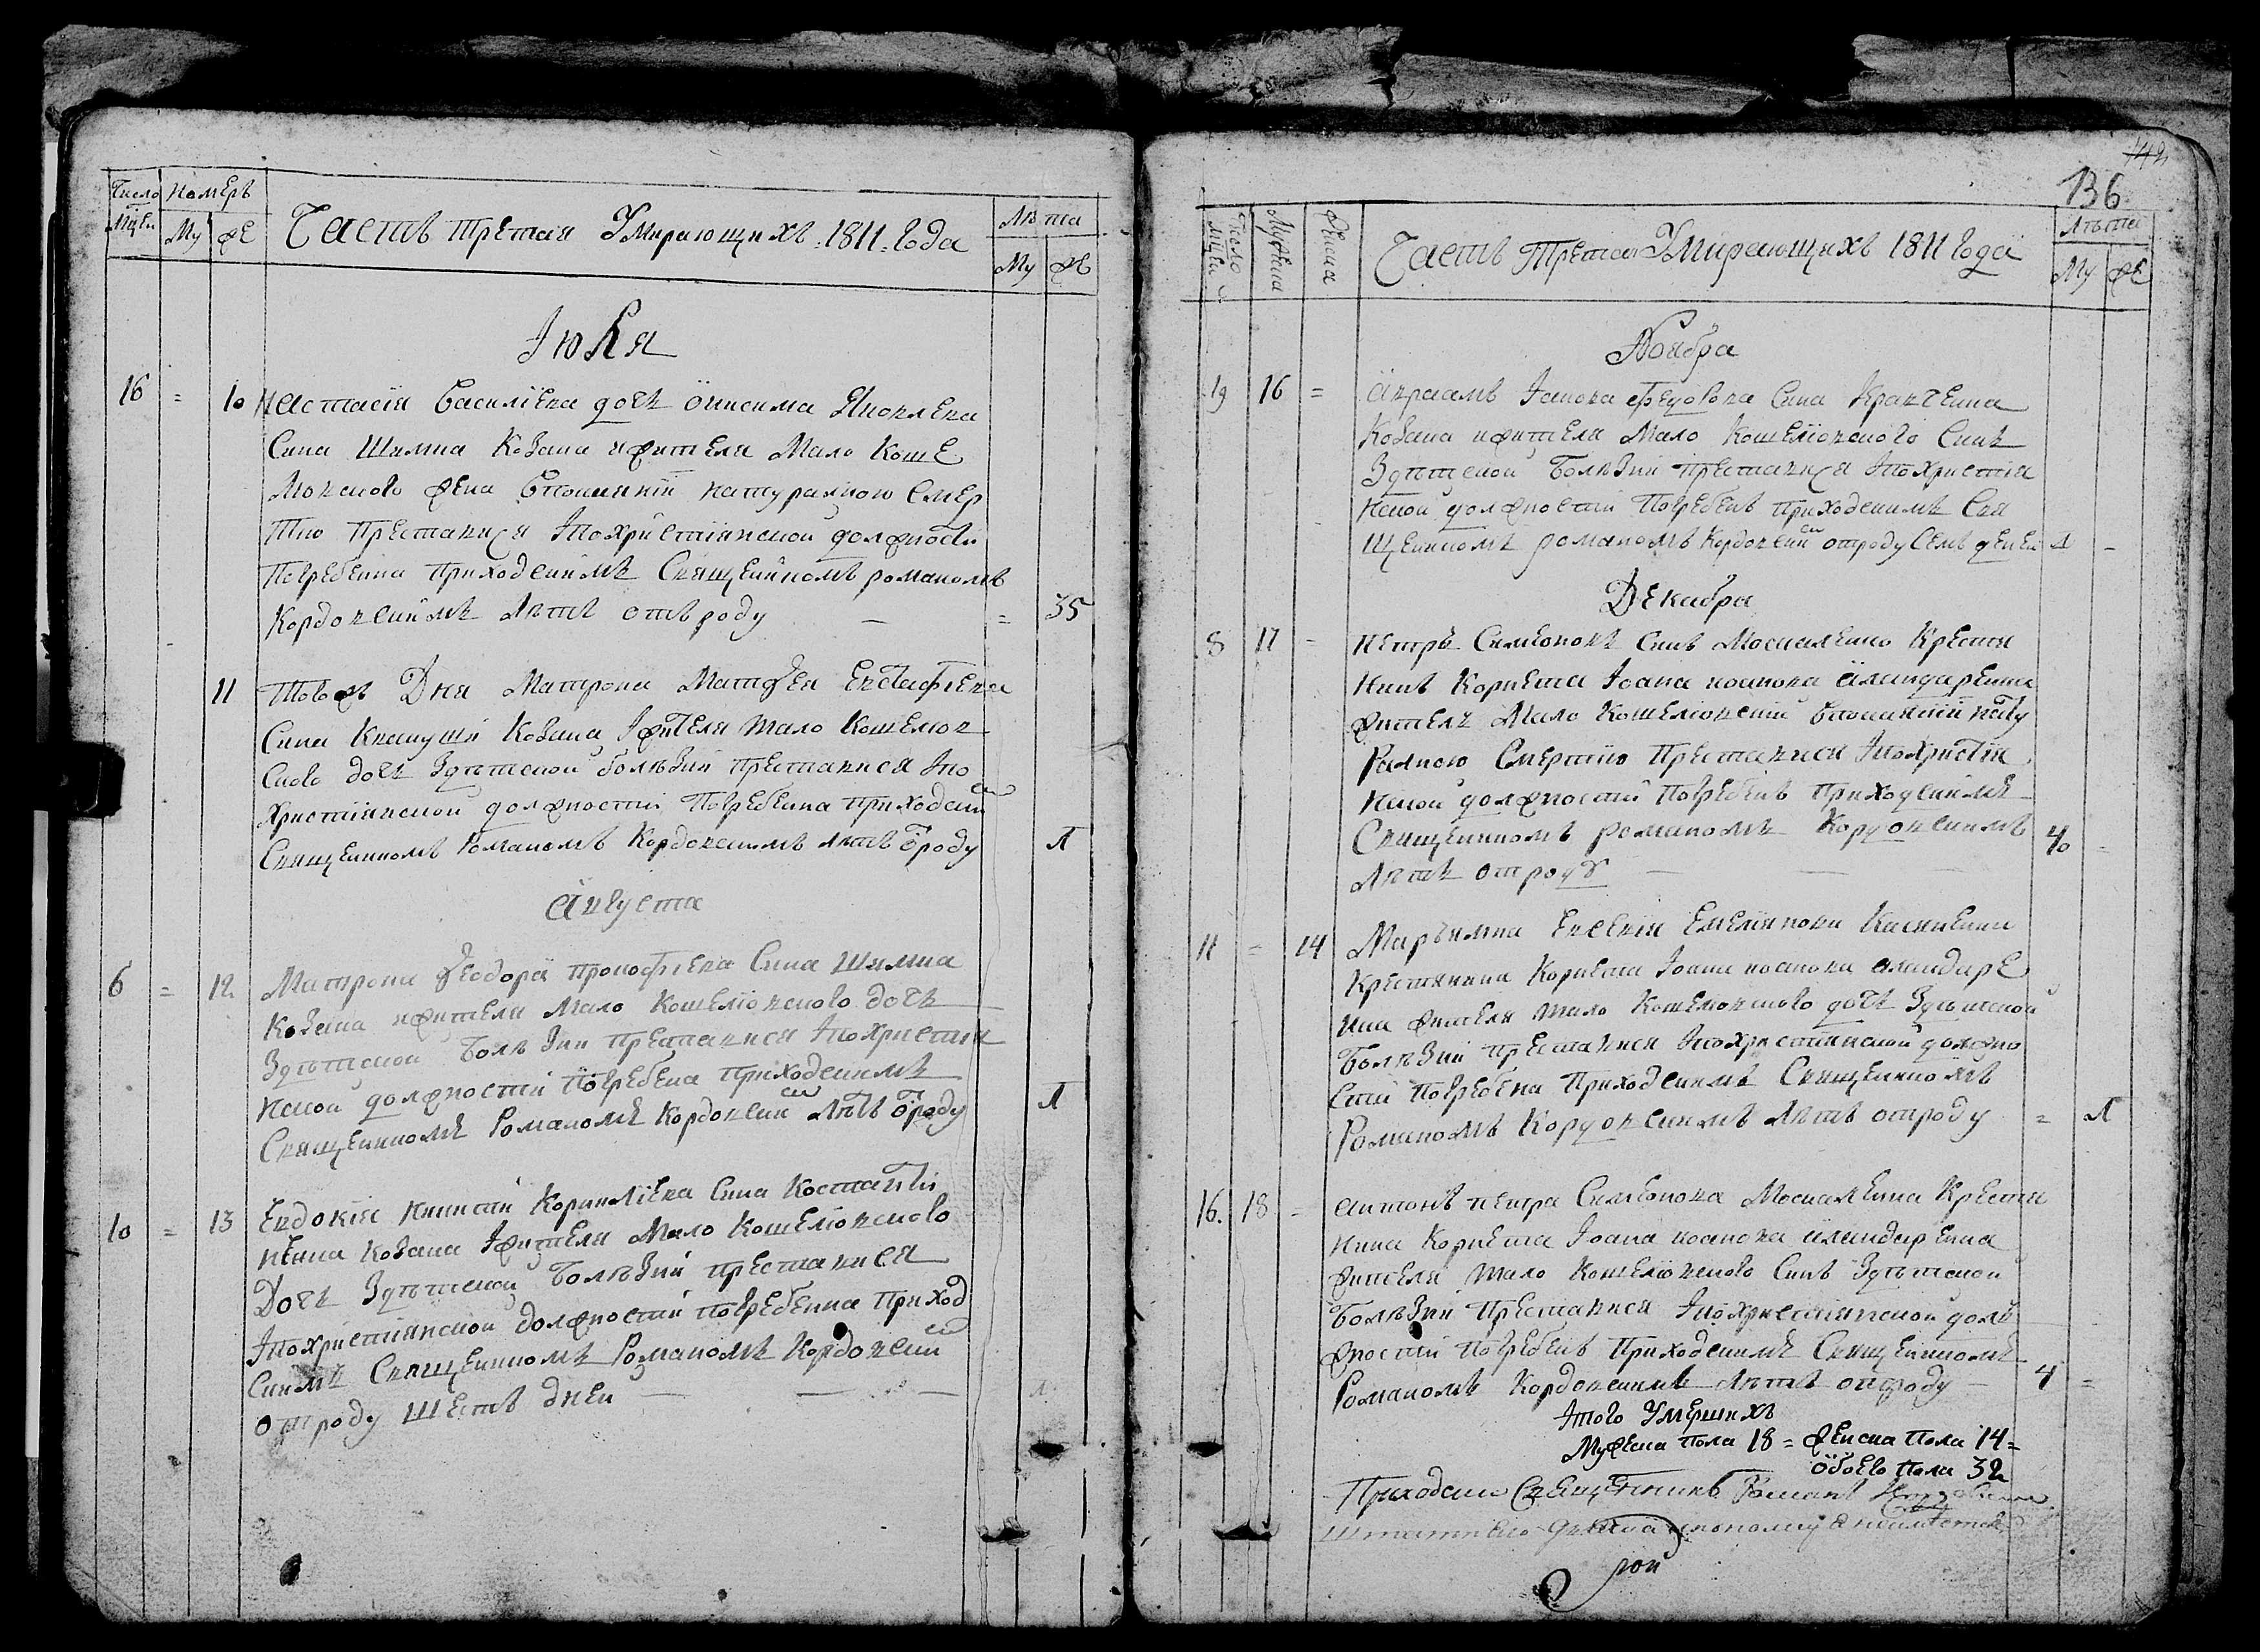 Число Номеръ
Мцеи Му Же Часть третая Умирающихъ 1811 года Лѣта
Му Же
Іюля
16 = 10 Настасія Василіева дочъ Онисима Яковлева
Сина Шамна козака жителя Мало Коше
левского жена вспомянній натуралною смер
тию преставися и по христіянской должности
погребенна приходскимъ священникомъ романомъ
Кордовскимъ лѣтъ отъ роду = 35
11 Тогожъ Дня Матрона Матфея Евстафіева
Сина козака жителя мало Кошелев
ского дочъ здѣтской болѣзни преставися и по
христіянской должности погребенна приходским
священникомъ Романомъ Кордовскимъ лѣтъ от роду 1
Августа
6 = 12 Матрона Феодора прокофіева Сина Шамна
козака жителя Мало Кошеліовского дочъ
здѣтской болѣзни преставися и по христия
нской должности погребена приходскимъ
священникомъ Романомъ Кордовским лѣтъ от роду 1
10 = 13 Евдокія Никити Корниліева Сина Костанти
нѣнка козака жителя Мало Кошеліовского
Дочъ здѣтской болѣзни преставися
и по христіянской должности погребенна приход
скимъ священникомъ Романомъ Кордовским
от роду шесть дней
142
136
Число мцеи Мужеска Женска Часть Третая Умирающихъ 1811 года Лѣта
Му Же
Ноября
19 16 = Авраамъ Іакова Федорова Сина Кравченка
козака жителя Мало Кошеліовского Синъ
здѣтской болѣзни преставися и по христия
нской должности погребенъ приходскимъ свя
щенникомъ романомъ Кордовским от роду семъ дней 1 -
Декабря
8 17 - петръ Симеоновъ Синъ Москаленко Крестя
нинъ Корнета Іоана иванова
жителъ Мало Кошеліовский вспомянній нату
ралною смертию преставися и по христия
нской должности погребенъ приходскимъ
священникомъ романомъ Кордовскимъ 40 -
лѣтъ от роду
11 = 14 Марѣмна Евсевія Емеліянова
Крестянина Корнета Іоана иванова
жителя мало Кошеліовского дочъ здѣтской
болѣзни преставися и по христіянской должно
сти погребена приходскимъ священникомъ
Романомъ Кордовскимъ лѣтъ от роду = 1
16. 18 - антонъ петра Симеонова Москаленка Крестя
нина Корнета Іоана иванова
жителя мало Кошеліовского Синъ здѣтской
болѣзни преставися и по христіянской дол
жности погребенъ приходскимъ священникомъ
Романомъ Кордовскимъ лѣтъ от роду 4 =
Итого Умершихъ
Мужеска пола 18 = Женска пола 14 =
Обоего пола 32
Приходскии Священникъ Романъ